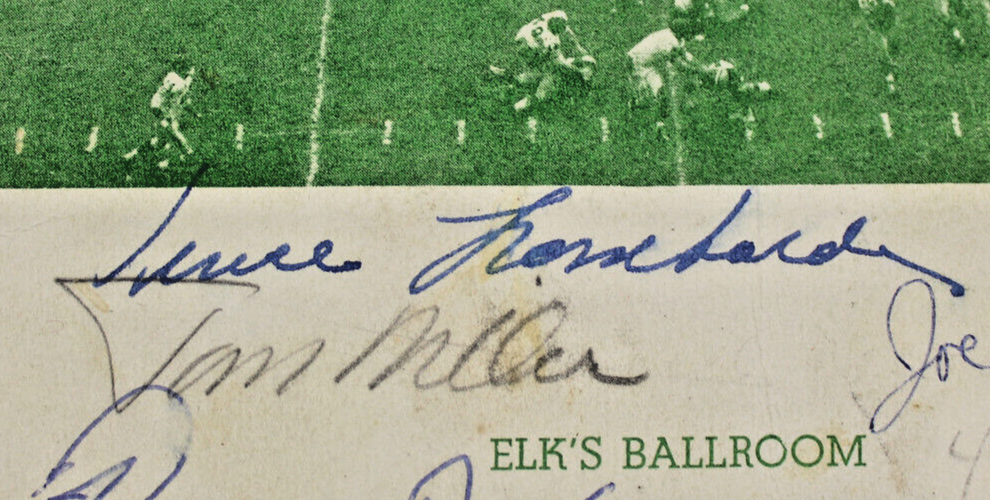 Vince Lombardi
Tom Miller
Joe
ELK'S BALLROOM